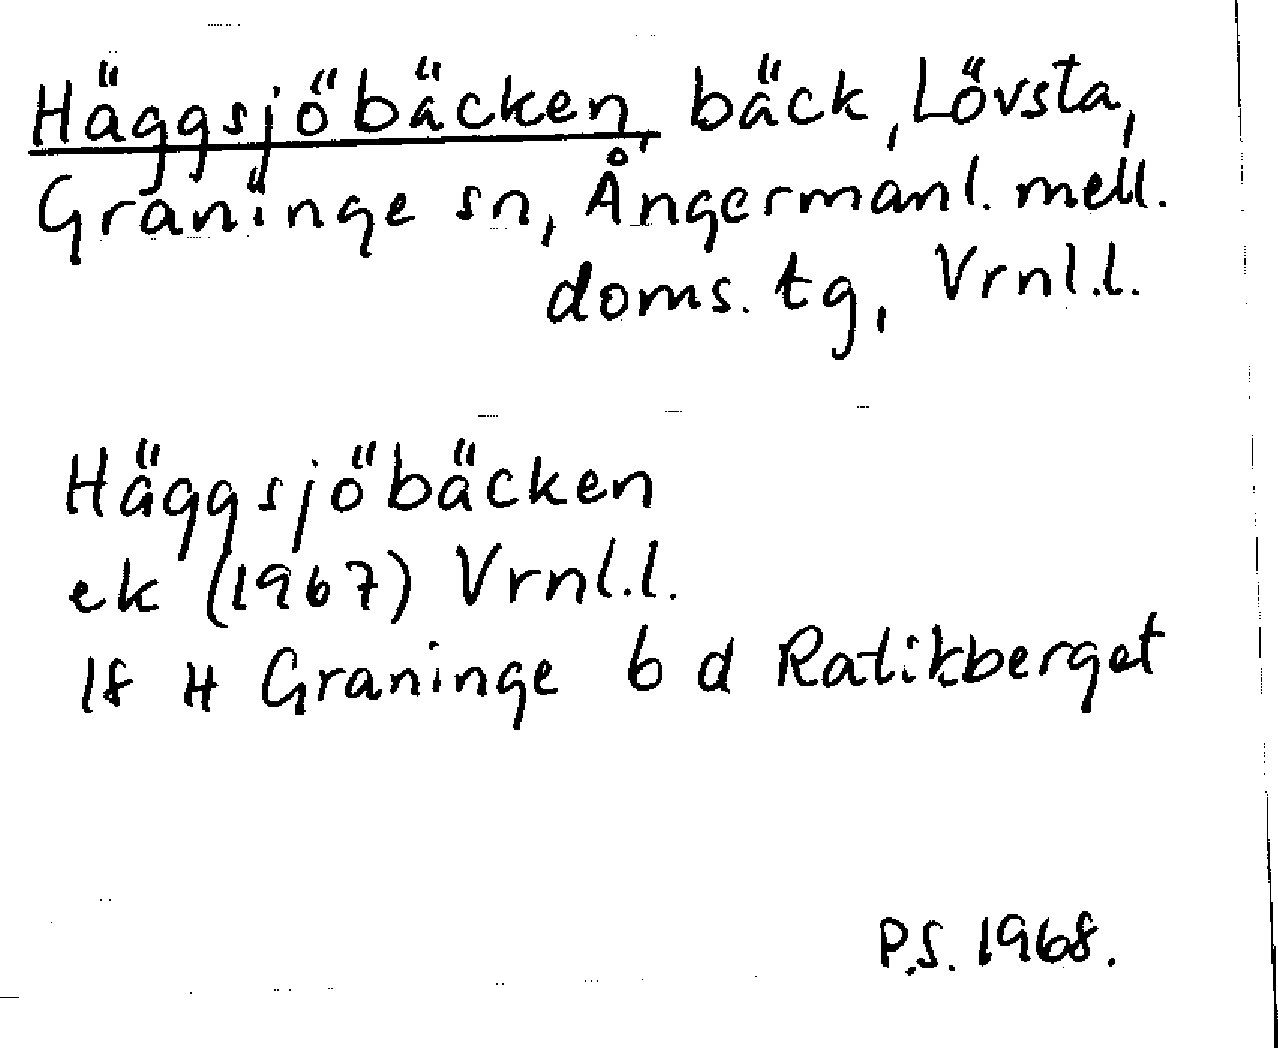 Häggsjöbäcken, bäck, Lövsta,
Graninge sn, Ångermanl. mell.
doms. tg, Vrnl.l.
Häggsjöbäcken
ek (1967) Vrnl.l.
18 H Graninge b d Ratikberget
P.S. 1968.